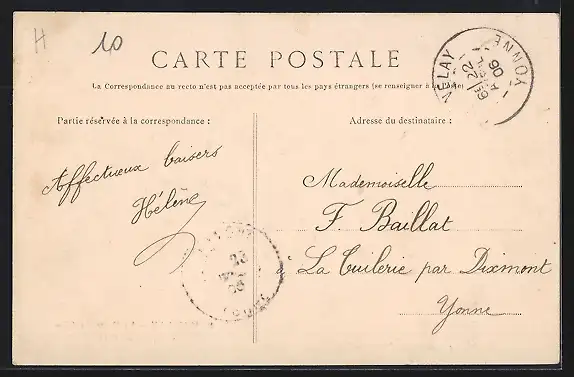 H
10
CARTE POSTALE
La Correspondance au recto n'est pas acceptée par tous les pays étrangers (se renseigner à la
Partie réservée à la correspondance :
Adresse du destinataire :
Affectueux baisers
Hélène
Mademoiselle
F. Baillat
à La Tuilerie par Dixmont
Yonne
VELAY
22
06
YONNE
23